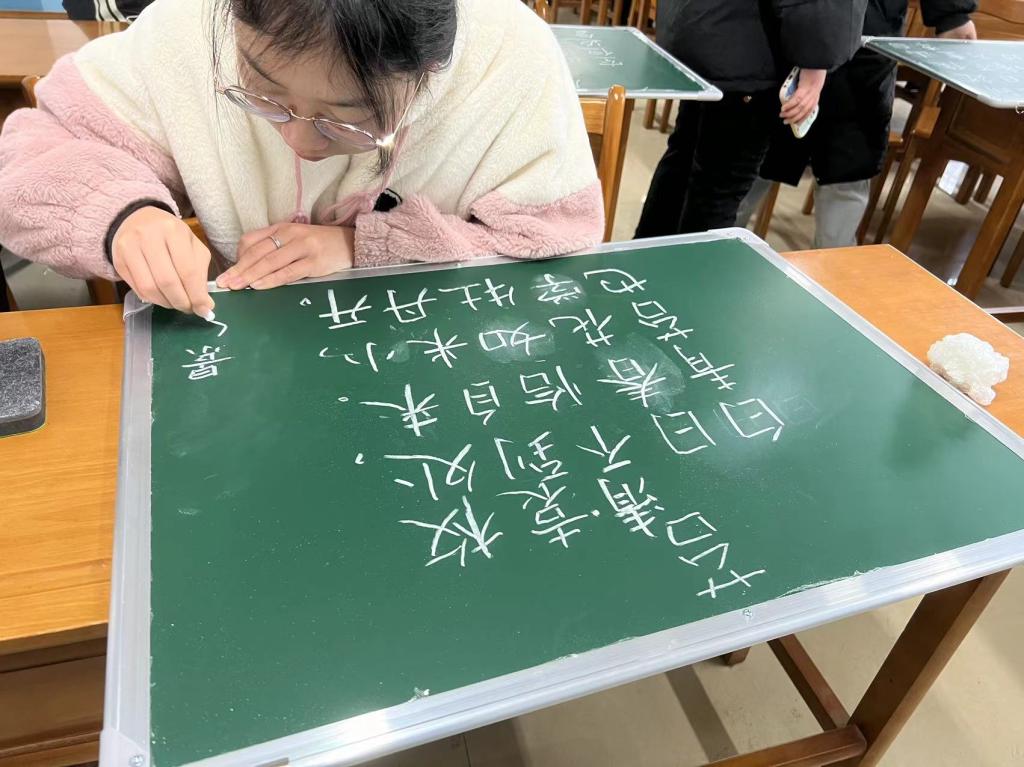 苔
清·袁枚
白日不到处，
青春恰自来。
苔花如米小，
也学牡丹开。
景